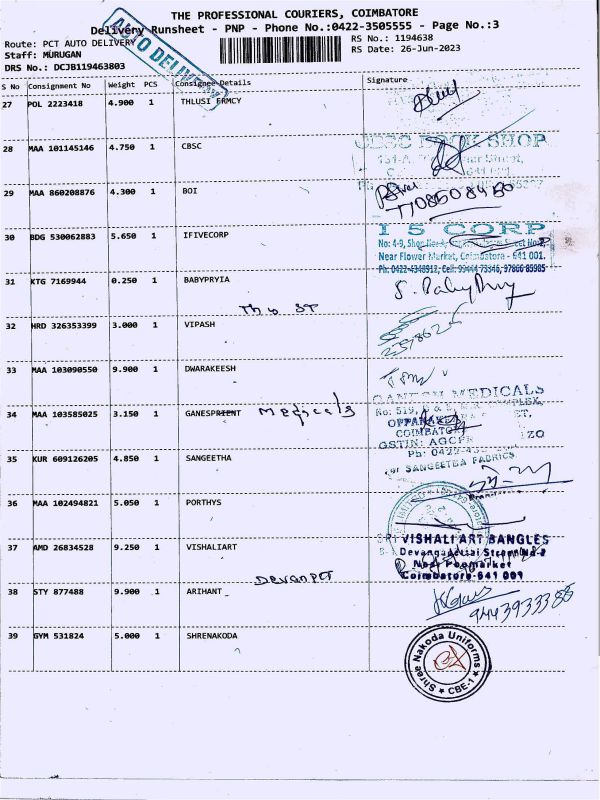 THE PROFESSIONAL COURIERS, COIMBATORE
Delivery Runsheet - PNP - Phone No.:0422-3505555 - Page No.:3
Route: PCT AUTO DELIVERY
RS No.: 1194638
Staff: MURUGAN
RS Date: 26-Jun-2023
DRS No.: DCJB119463803
AUTO DELIVERY
S No Consignment No Weight PCS Consignee Details Signature
27 POL 2223418 4.900 1 THLUSI FRMCY
28 MAA 101145146 4.750 1 CBSC
CBSC BOOK SHOP
29 MAA 860208876 4.300 1 BOI
30 BDG 530062883 5.650 1 IFIVECORP
I 5 CORP
No: 4-9, Shop No: Street No:2,
Near Flower Market, Coimbatore - 641 001.
Ph: 0422-4348912, Cell: 99444 73346, 97866 85985
31 KTG 7169944 0.250 1 BABYPRYIA
32 HRD 326353399 3.000 1 VIPASH
33 MAA 103090550 9.900 1 DWARAKEESH
34 MAA 103585025 3.150 1 GANESPRIENT Medicals
GANESH MEDICALS
No: 519,
COIMBATORE
35 KUR 609126205 4.850 1 SANGEETHA
For SANGEETHA FABRICS
36 MAA 102494821 5.050 1 PORTHYS
37 AMD 26834528 9.250 1 VISHALIART
SRI VISHALI ART BANGLES
Near Poomarket
Coimbatore-641 001
Devanpet
38 STY 877488 9.900 1 ARIHANT
9443933388
39 GYM 531824 5.000 1 SHRENAKODA
Shree Nakoda Uniforms
CBE-1